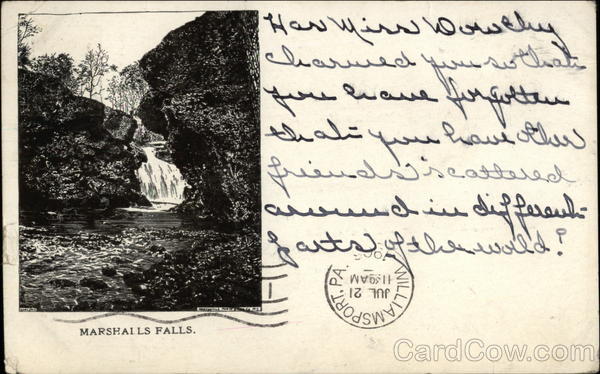 Has Miss Dowchy
charmed you so that
you have forgotten
that you have other
friends scattered
around in different
parts of the world?
WILLIAMSPORT, PA.
JUL 21
11:30AM
MARSHALLS FALLS.
CardCow.com